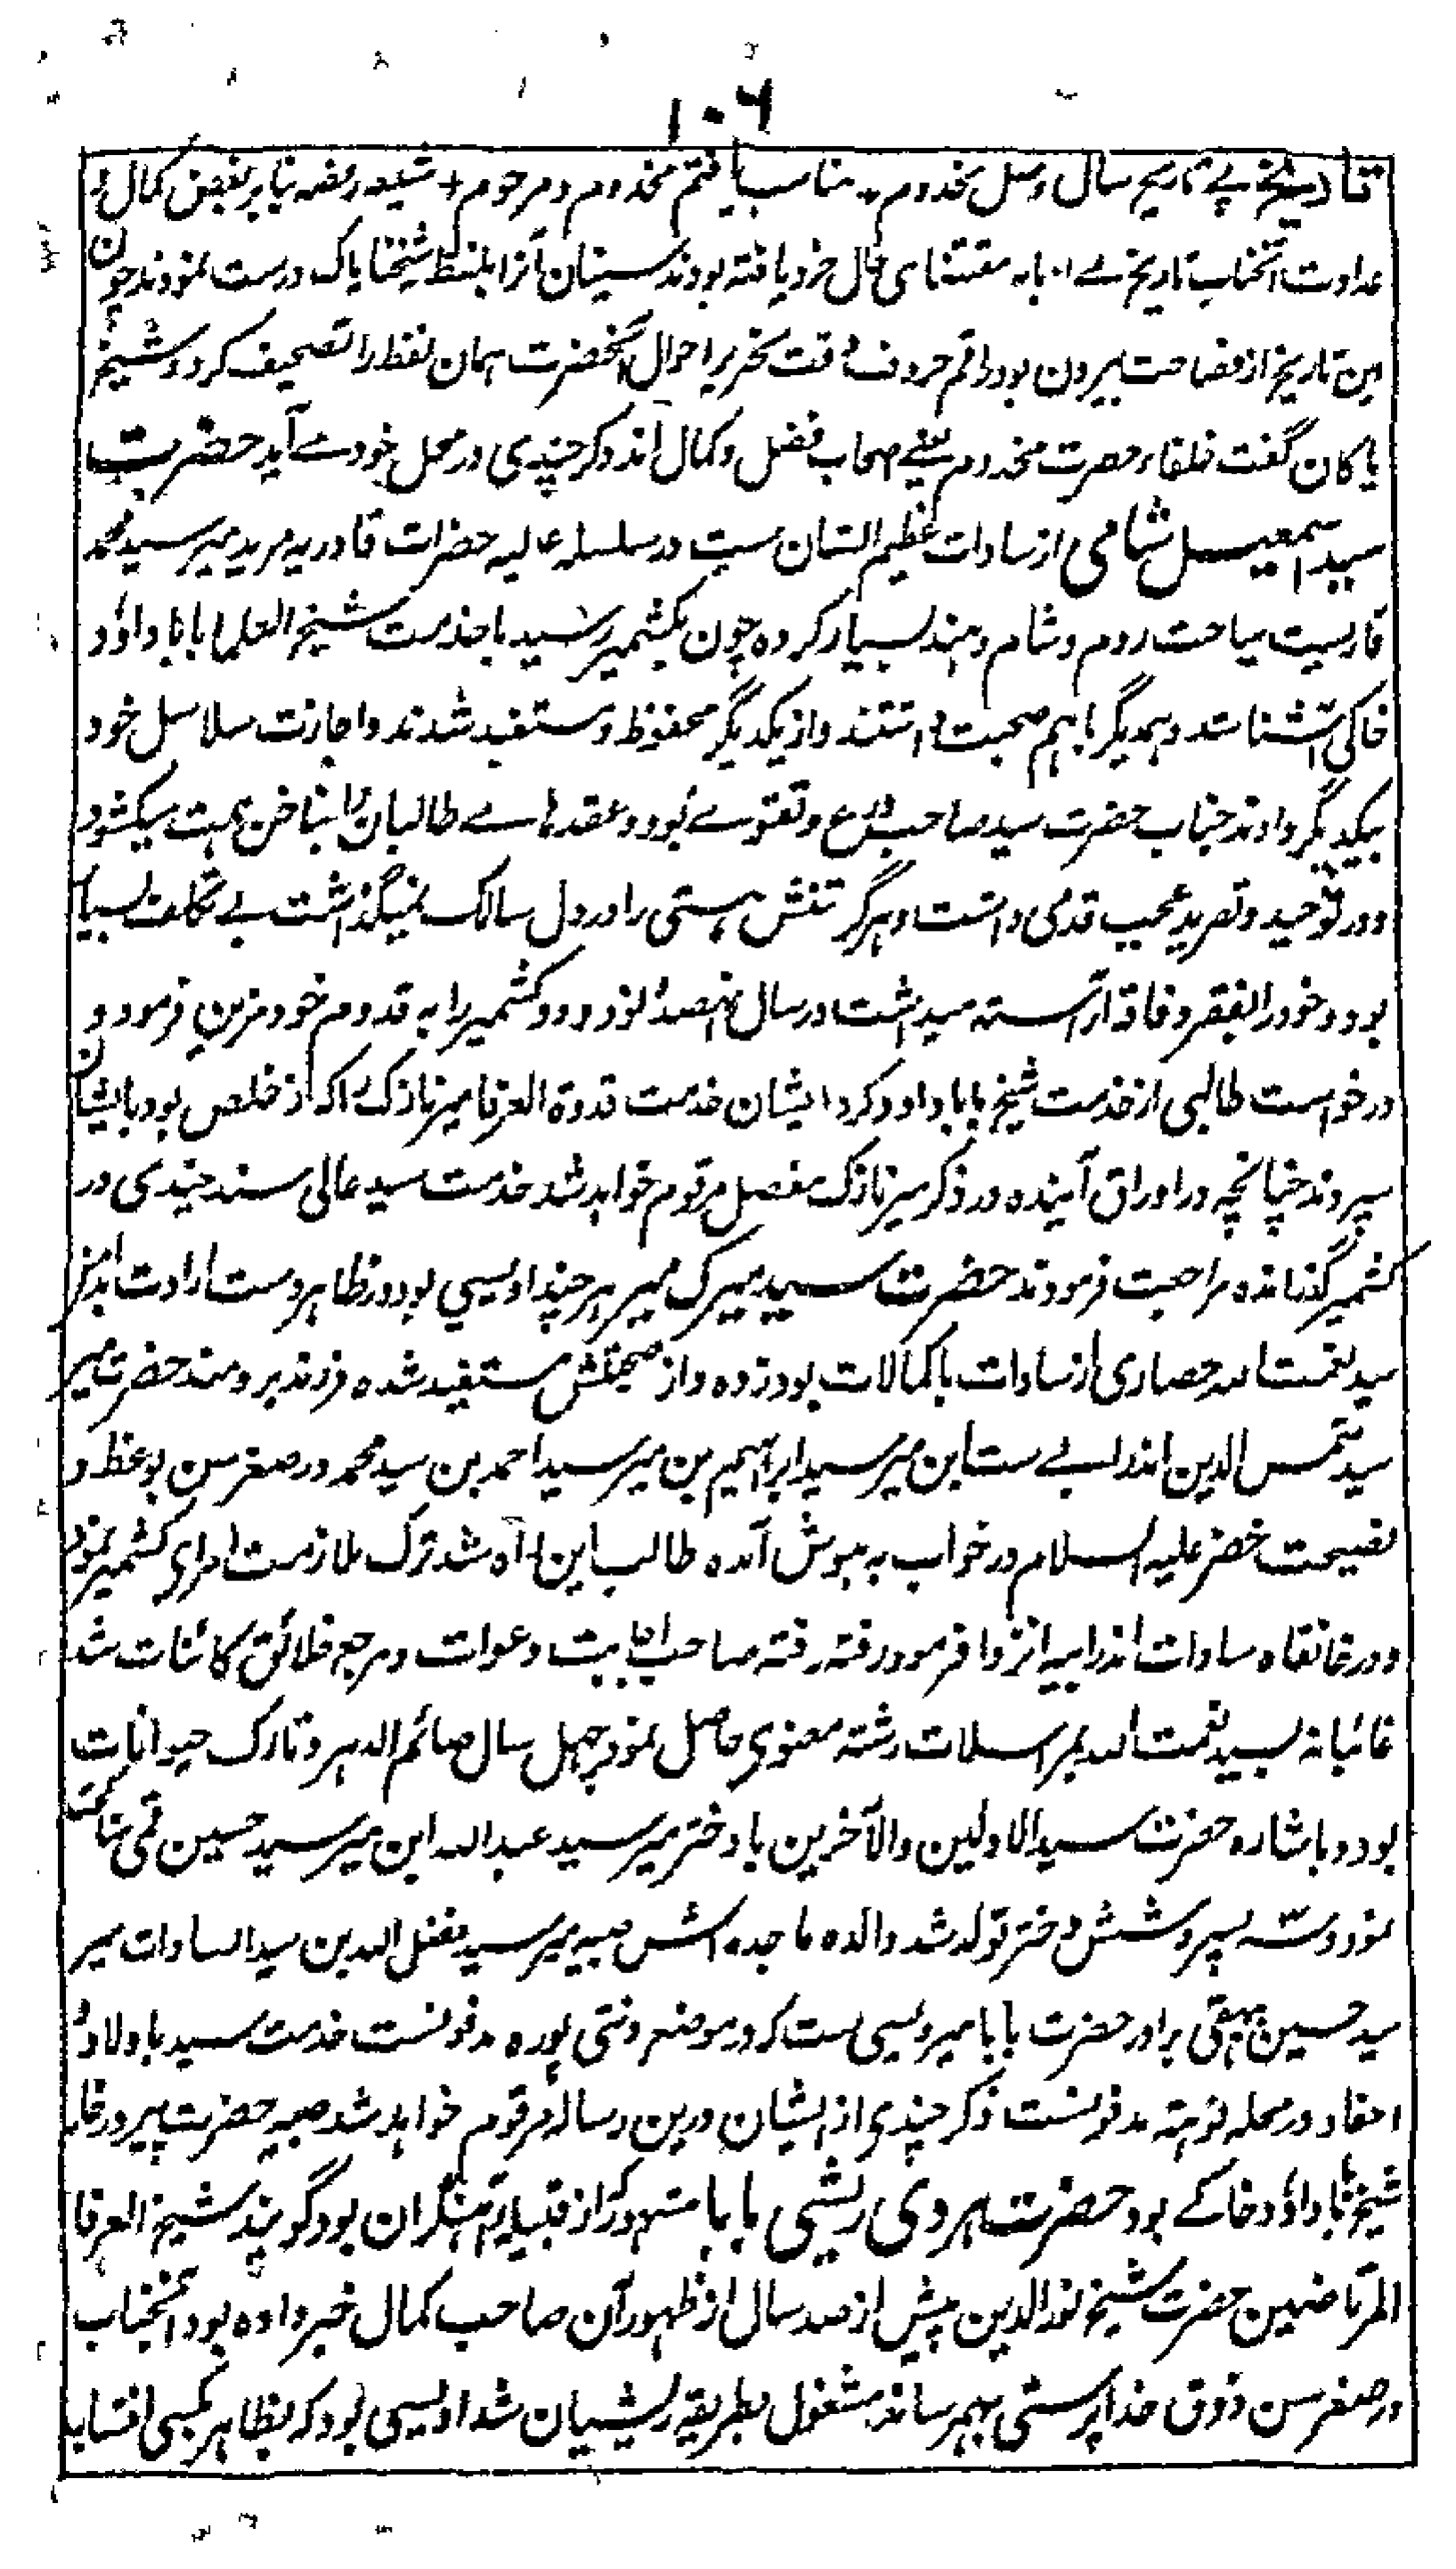 ۱۰۶
تاریخ پے تاریخ سال وصل مخدوم + مناسب یافتم مخدوم مرحوم + شیعه رفضه بنابر بغض کمال و
عداوت انتخاب تاریخ بمقتضای حال خود یافته بودند سنیان آنرا بلفظ شیخنا پاک درست نمودند چون
این تاریخ از فصاحت بیرون بود راقم حروف وقت تحریر احوال آنحضرت همان لفظ را تصحیف کرد و شیخ
پاکان گفت خلفاء حضرت مخدوم یعنے اصحاب فضل و کمال اند ذکر چندی در محل خود مے آید حضرت
سید اسمعیل شامی از سادات عظیم الشان ست در سلسله عالیه حضرات قادریه مرید میر سید محمد
قادریست سیاحت روم و شام و هند بسیار کرده چون بکشمیر رسید با خدمت شیخ العلما بابا داؤد
خاکی آشنا شد و همدیگر باهم صحبت داشتند و از یکدیگر محظوظ و مستفید شدند و اجازت سلاسل خود
بیکدیگر دادند جناب حضرت سید صاحب ورع و تقوے بود و عقدهاے طالبان را بناخن همت میکشود
و در توحید و تفرید عجیب قدمی داشت و هرگز نقش هستی را در دل سالک نمیگذاشت بے تکلف بسیار
بود و خود را بفقر و فاقه آراسته میداشت در سال نهصد و نود و دو کشمیر را به قدوم خود مزین فرمود و
درخواست طالبی از خدمت شیخ بابا داود کرد ایشان خدمت قدوة العرفا میر نازک را که از خلص بود بایشان
سپردند چنانچه در اوراق آینده در ذکر میر نازک مفصل مرقوم خواهد شد خدمت سید عالی سند چندی در
کشمیر گذرانده مراجعت فرمودند حضرت سید میرک میر هر چند اویسی بود در ظاهر دست ارادت بدامن
سید نعمت الله حصاری از سادات با کمالات بود زده و از صحبتش مستفید شده فرزند برومند حضرت میر
سید شمس الدین اندرابے ست ابن میر سید ابراهیم بن میر سید احمد بن سید محمد در صغر سن بوعظ و
نصیحت خضر علیه السلام در خواب به هوش آمده طالب این راه شد ترک ملازمت امرای کشمیر نمود
و در خانقاه سادات اندرابیه انزوا فرمود رفته رفته صاحب اجابت دعوات و مرجع خلائق کائنات شد
غائبانه بسید نعمت الله بمراسلات رشته معنوی حاصل نمود چهل سال صائم الدهر و تارک حیوانات
بود و باشاره حضرت سید الاولین والآخرین با دختر میر سید عبدالله ابن میر سید حسین قمی مناکحت
نمود و سه پسر و شش دختر تولد شد والده ماجده اش صبیه میر سید فضل الدین سید السادات میر
سید حسین بیهقی برادر حضرت بابا میر ویسی ست که در موضع ونتی پوره مدفونست خدمت سید با اولاد و
احفاد در محله نوهته مدفونست ذکر چندی از ایشان درین رساله مرقوم خواهد شد صبیه حضرت پیر در
شیخ بابا داؤد خاکے بود حضرت هردی ریشی بابا مشهور از قبیله آهنگران بود گویند شیخ العرفا
المرتاضین حضرت شیخ نورالدین پیش از صد سال از ظهور آن صاحب کمال خبر داده بود آنجناب
در صغر سن ذوق خدا پرستی بهم رسانده مشغول بطریقه ریشیان شد اویسی بود که بظاهر بکسی انتساب